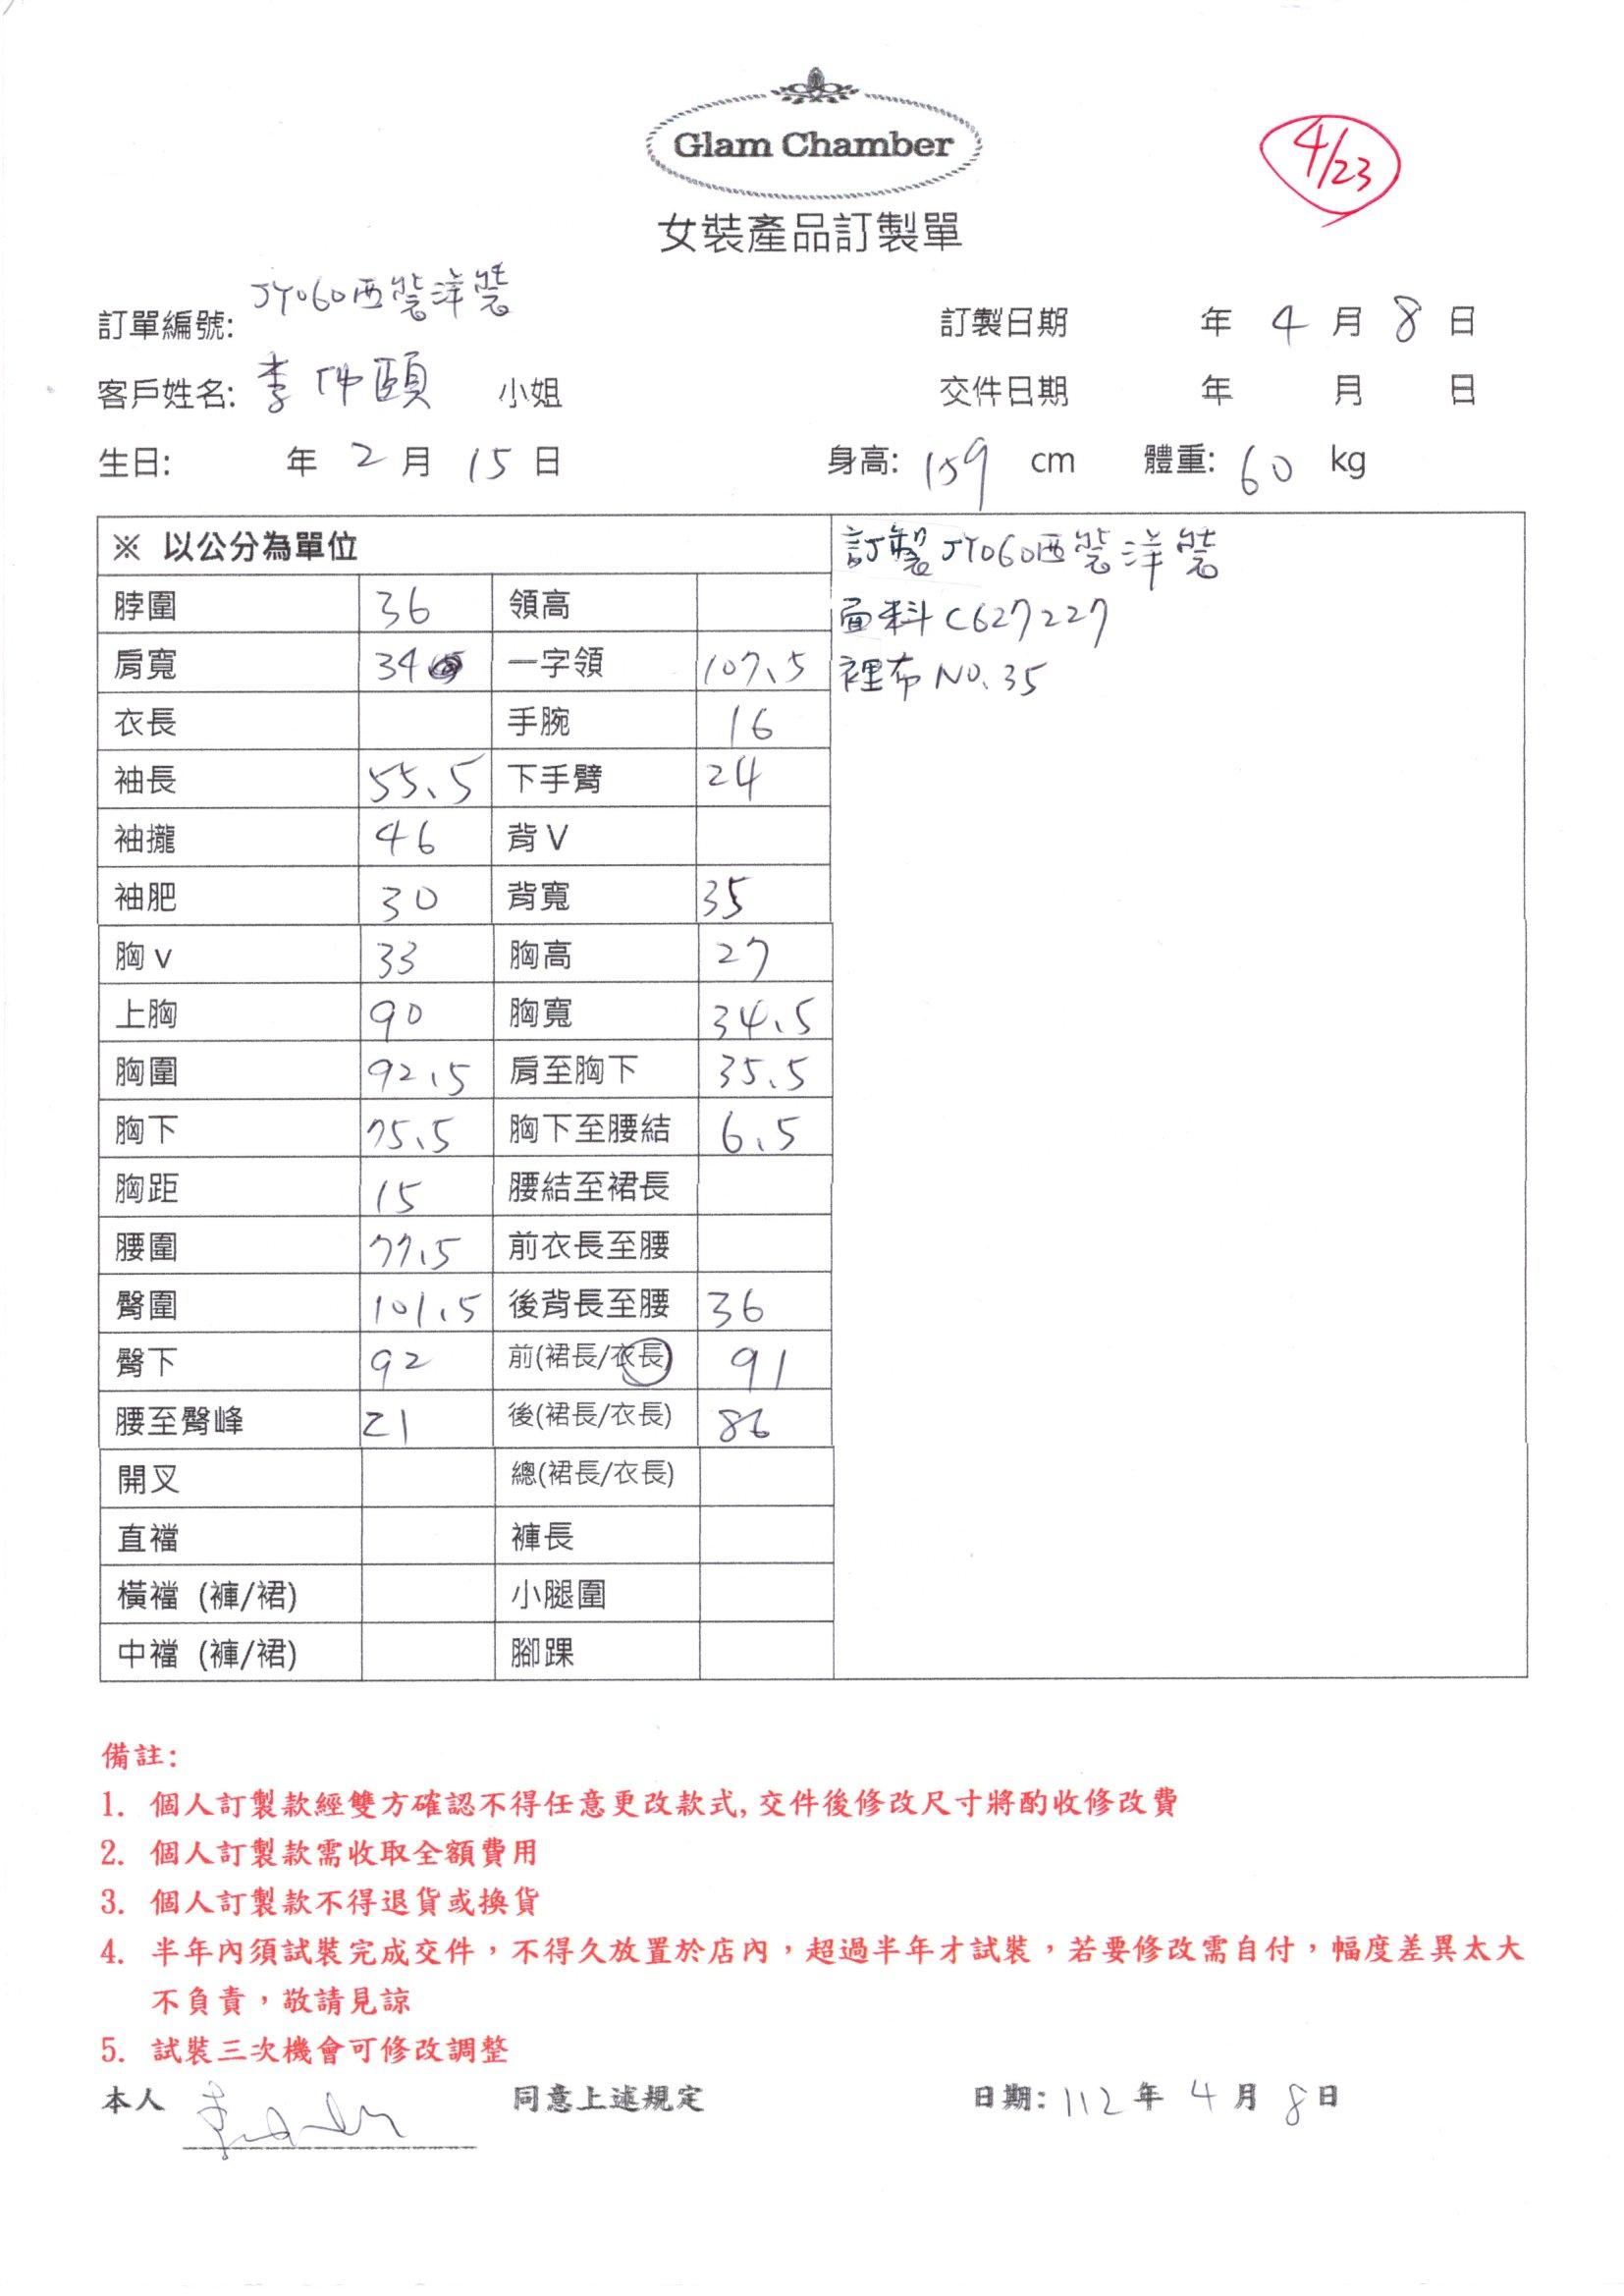 Glam Chamber
4/23
女裝產品訂製單
訂單編號: JY060西裝洋裝
訂製日期 年 4 月 8 日
客戶姓名: 李仲頤 小姐
交件日期 年 月 日
生日: 年 2 月 15 日 身高: 159 cm 體重: 60 kg
※ 以公分為單位
脖圍 36 領高
肩寬 34 一字領 107.5
衣長 手腕 16
袖長 55.5 下手臂 24
袖攏 46 背V
袖肥 30 背寬 35
胸v 33 胸高 27
上胸 90 胸寬 34.5
胸圍 92.5 肩至胸下 35.5
胸下 75.5 胸下至腰結 6.5
胸距 15 腰結至裙長
腰圍 77.5 前衣長至腰
臀圍 101.5 後背長至腰 36
臀下 92 前(裙長/衣長) 91
腰至臀峰 21 後(裙長/衣長) 86
開叉 總(裙長/衣長)
直襠 褲長
橫襠 (褲/裙) 小腿圍
中襠 (褲/裙) 腳踝
訂製JY060西裝洋裝
面料C627227
裡布NO.35
備註:
1. 個人訂製款經雙方確認不得任意更改款式,交件後修改尺寸將酌收修改費
2. 個人訂製款需收取全額費用
3. 個人訂製款不得退貨或換貨
4. 半年內須試裝完成交件，不得久放置於店內，超過半年才試裝，若要修改需自付，幅度差異太大
不負責，敬請見諒
5. 試裝三次機會可修改調整
本人 同意上述規定 日期: 112 年 4 月 8 日